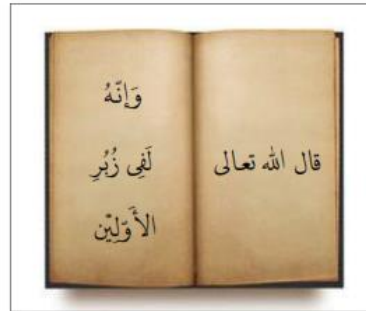 قال الله تعالى
وَإِنَّهُ
لَفِى زُبُرِ
الأَوّلِيْن